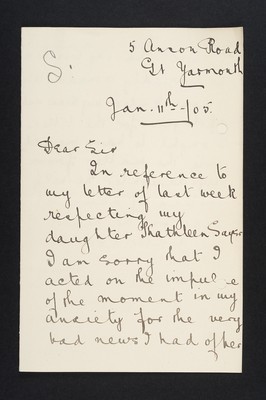 S.
5 Annon Road
Gt Yarmouth
Jan. 11th -/05.
Dear Sir
In reference to
my letter of last week
respecting my
daughter Kathleen Sayer
I am sorry that I
acted on the impulse
of the moment in my
anxiety for the very
bad news I had of her